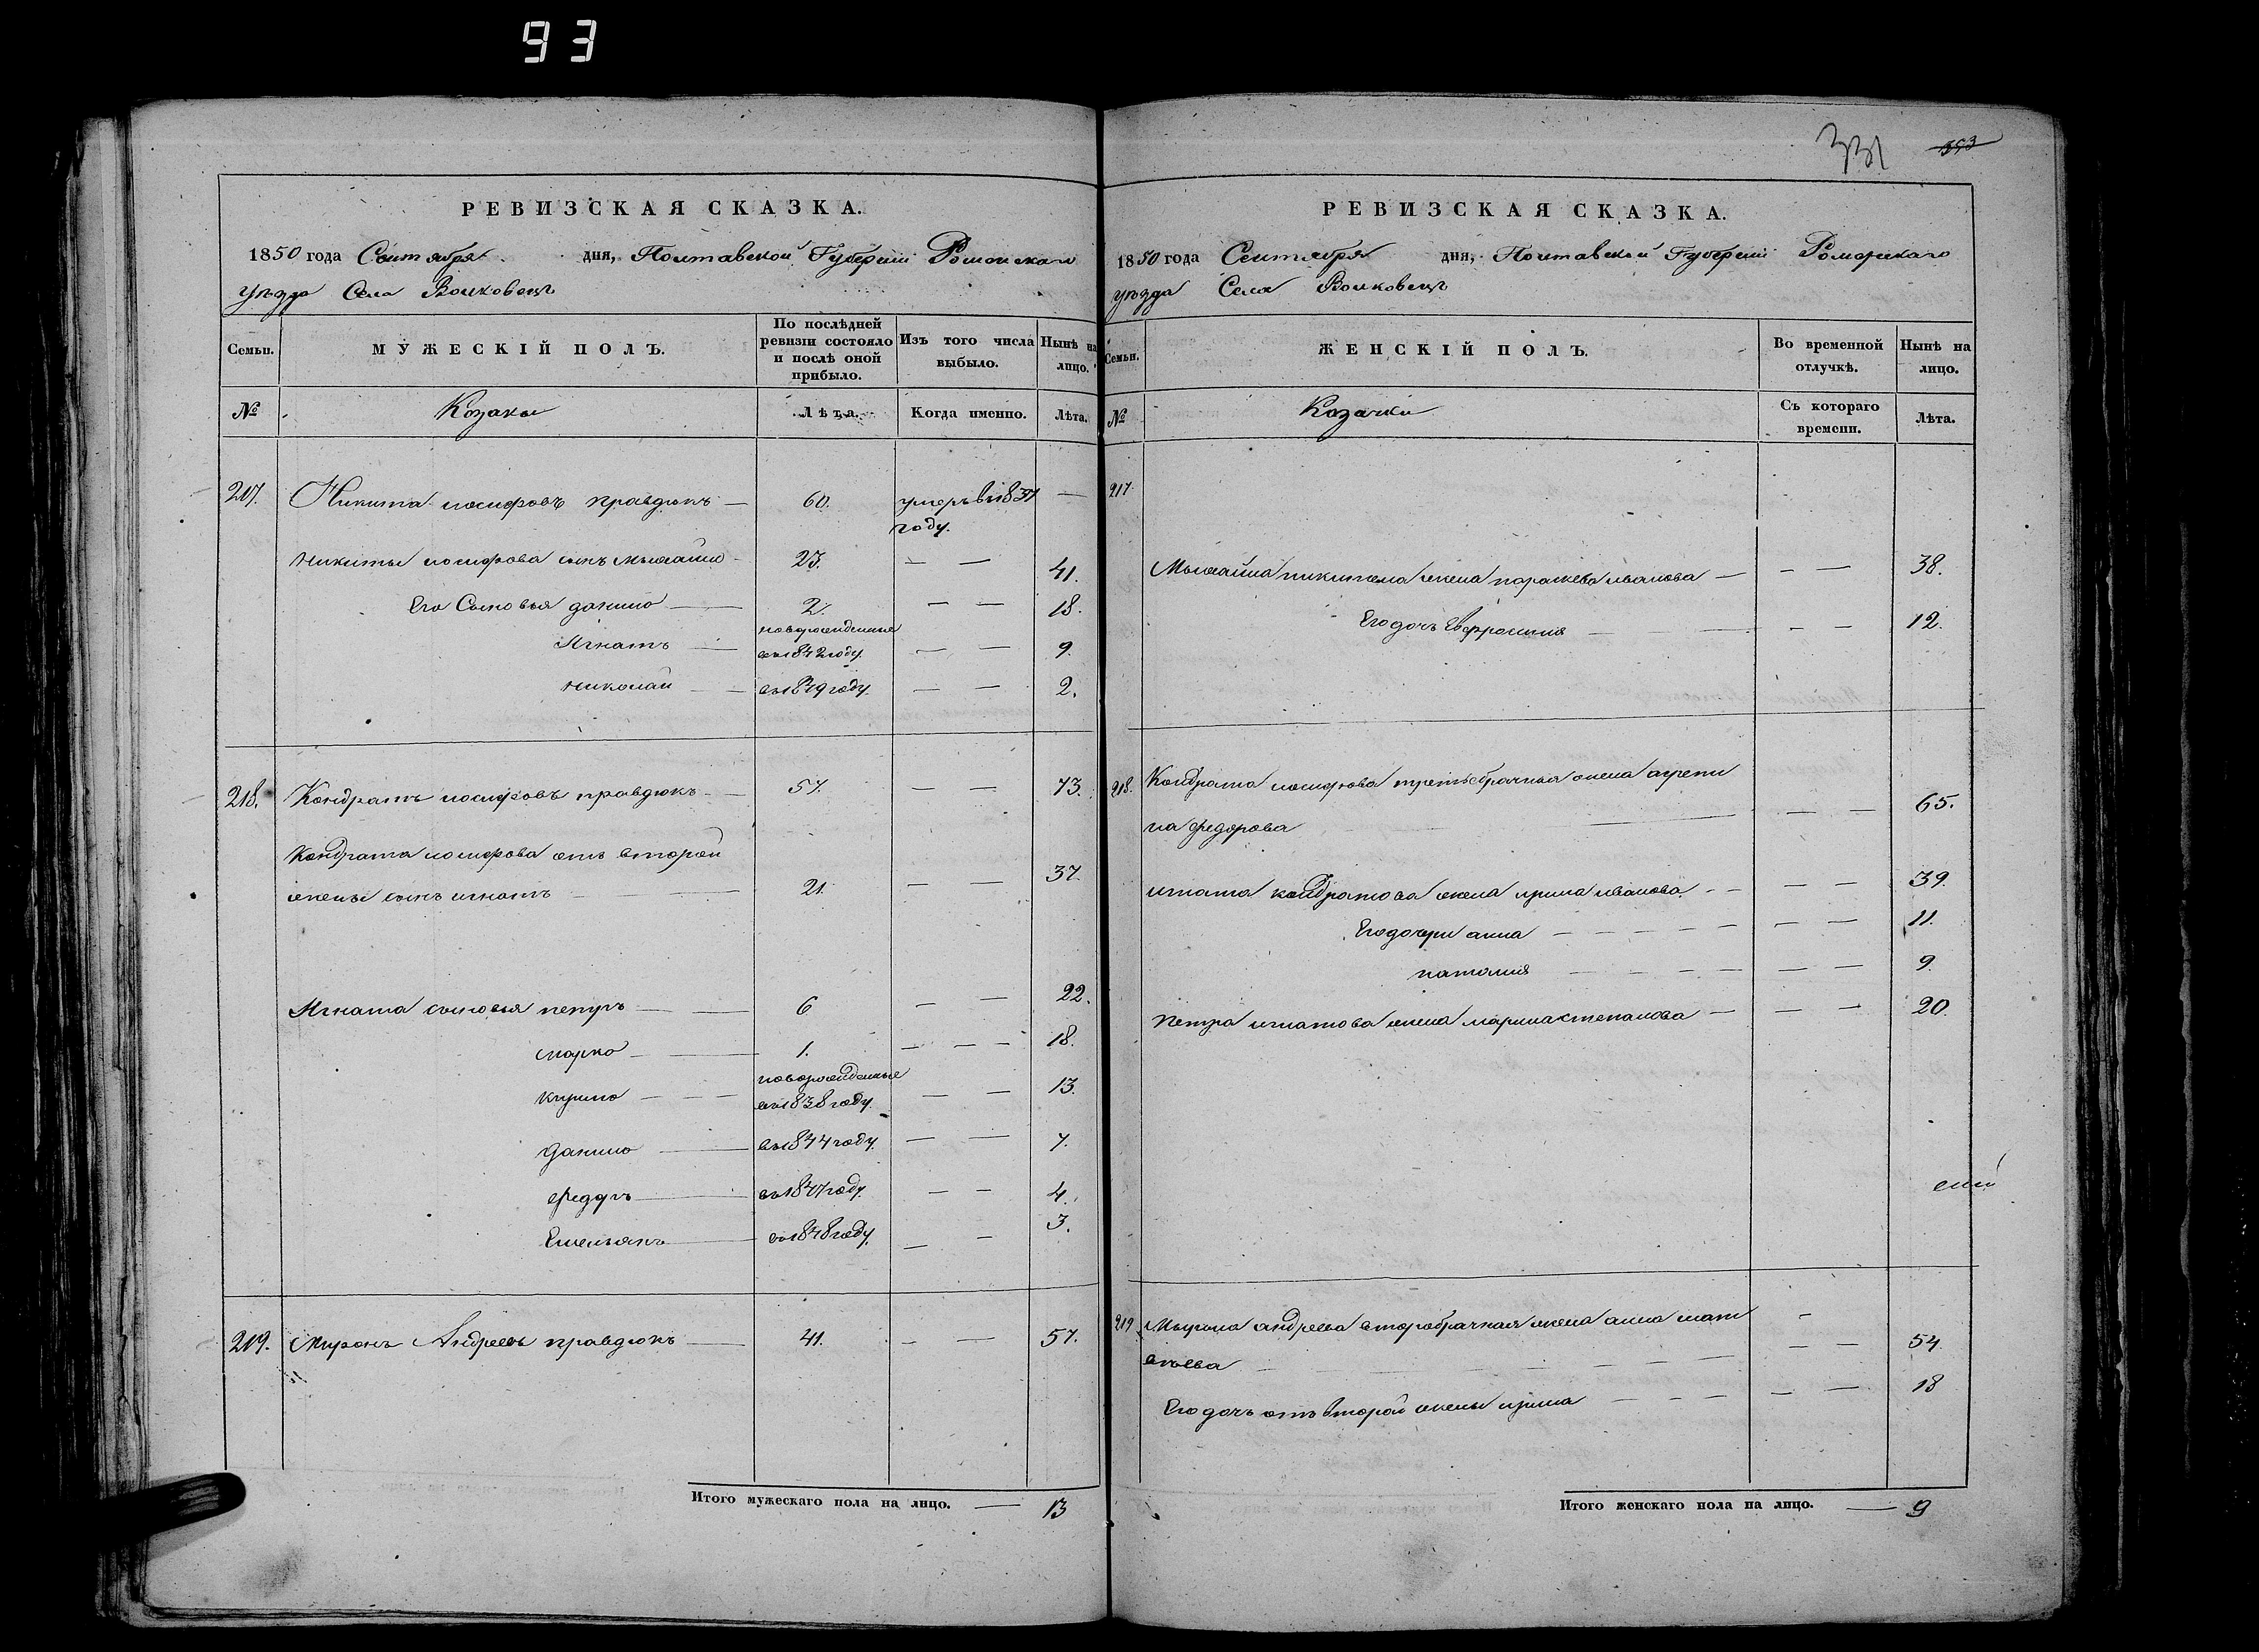 93
331 393
РЕВИЗСКАЯ СКАЗКА.
1850 года Сентября дня, Полтавской Губерніи Роменскаго
уезда Села Волковецъ
Семьи. МУЖЕСКІЙ ПОЛЪ. По послѣдней ревизіи состояло и послѣ оной прибыло. Изъ того числа выбыло. Нынѣ на лицо.
№ Козаки Лѣта. Когда именно. Лѣта.
217. Никита иосифовъ правдюкъ — 60. умеръ в 1837 —
году.
Никиты иосифова сынъ михайло - 23. — — 41.
Его Сыновья данило — 2. — — 18.
новорожденные
Игнатъ — въ 1842 году. — — 9.
николай — въ 1849 году. — — 2.
218. Кондратъ иосифовъ правдюкъ — 57. — — 73.
Кондрата иосифова отъ второй
жены сынъ игнатъ — 21. — — 37.
Игната сыновья петръ — 6 — — 22.
марко — 1. — — — 18.
новорожденные
кирило — — — въ 1838 году. — — 13.
данило — въ 1844 году. — — 7.
федоръ — въ 1847 году. — — 4.
Емельянъ — въ 1848 году. — — 3.
219. Миронъ Андреевъ правдюкъ — 41. — — 57.
Итого мужескаго пола на лицо. — 13
РЕВИЗСКАЯ СКАЗКА.
1850 года Сентября дня, Полтавской Губерніи Роменскаго
уезда Села Волковецъ
Семьи. ЖЕНСКІЙ ПОЛЪ. Во временной отлучкѣ. Нынѣ на лицо.
№ Козачки Съ котораго времени. Лѣта.
217.
Михайла никитова жена параскева иванова — — — 38.
Его дочь Евфросинія — — — 12.
218. Кондрата иосифова третьебрачная жена агрепи
на федорова — — — 65.
игната кондратова жена ирина иванова. - — — — 39.
Его дочери анна — — — — — — — 11.
наталия — — — — — — 9.
Петра игнатова жена марина степанова — — — 20.
219. Мирона андреева второбрачная жена анна мат -
веева — — — 54.
Его дочь отъ второй жены ирина — — — — — 18
Итого женскаго пола на лицо. — 9